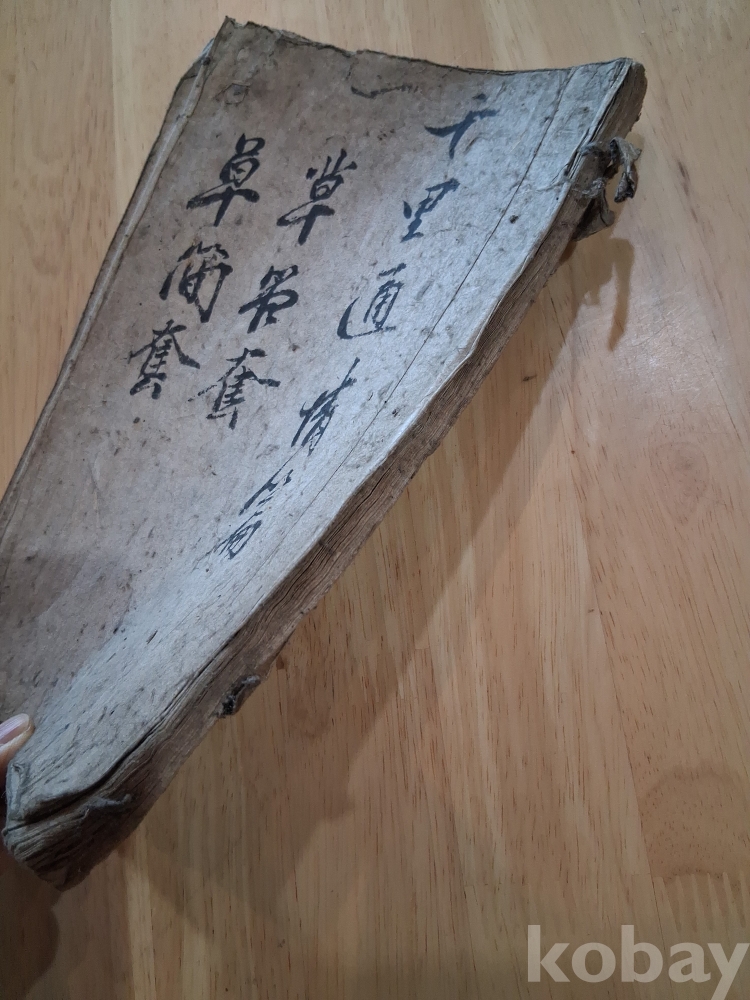 千里通情篇
草套
草簡套
kobay